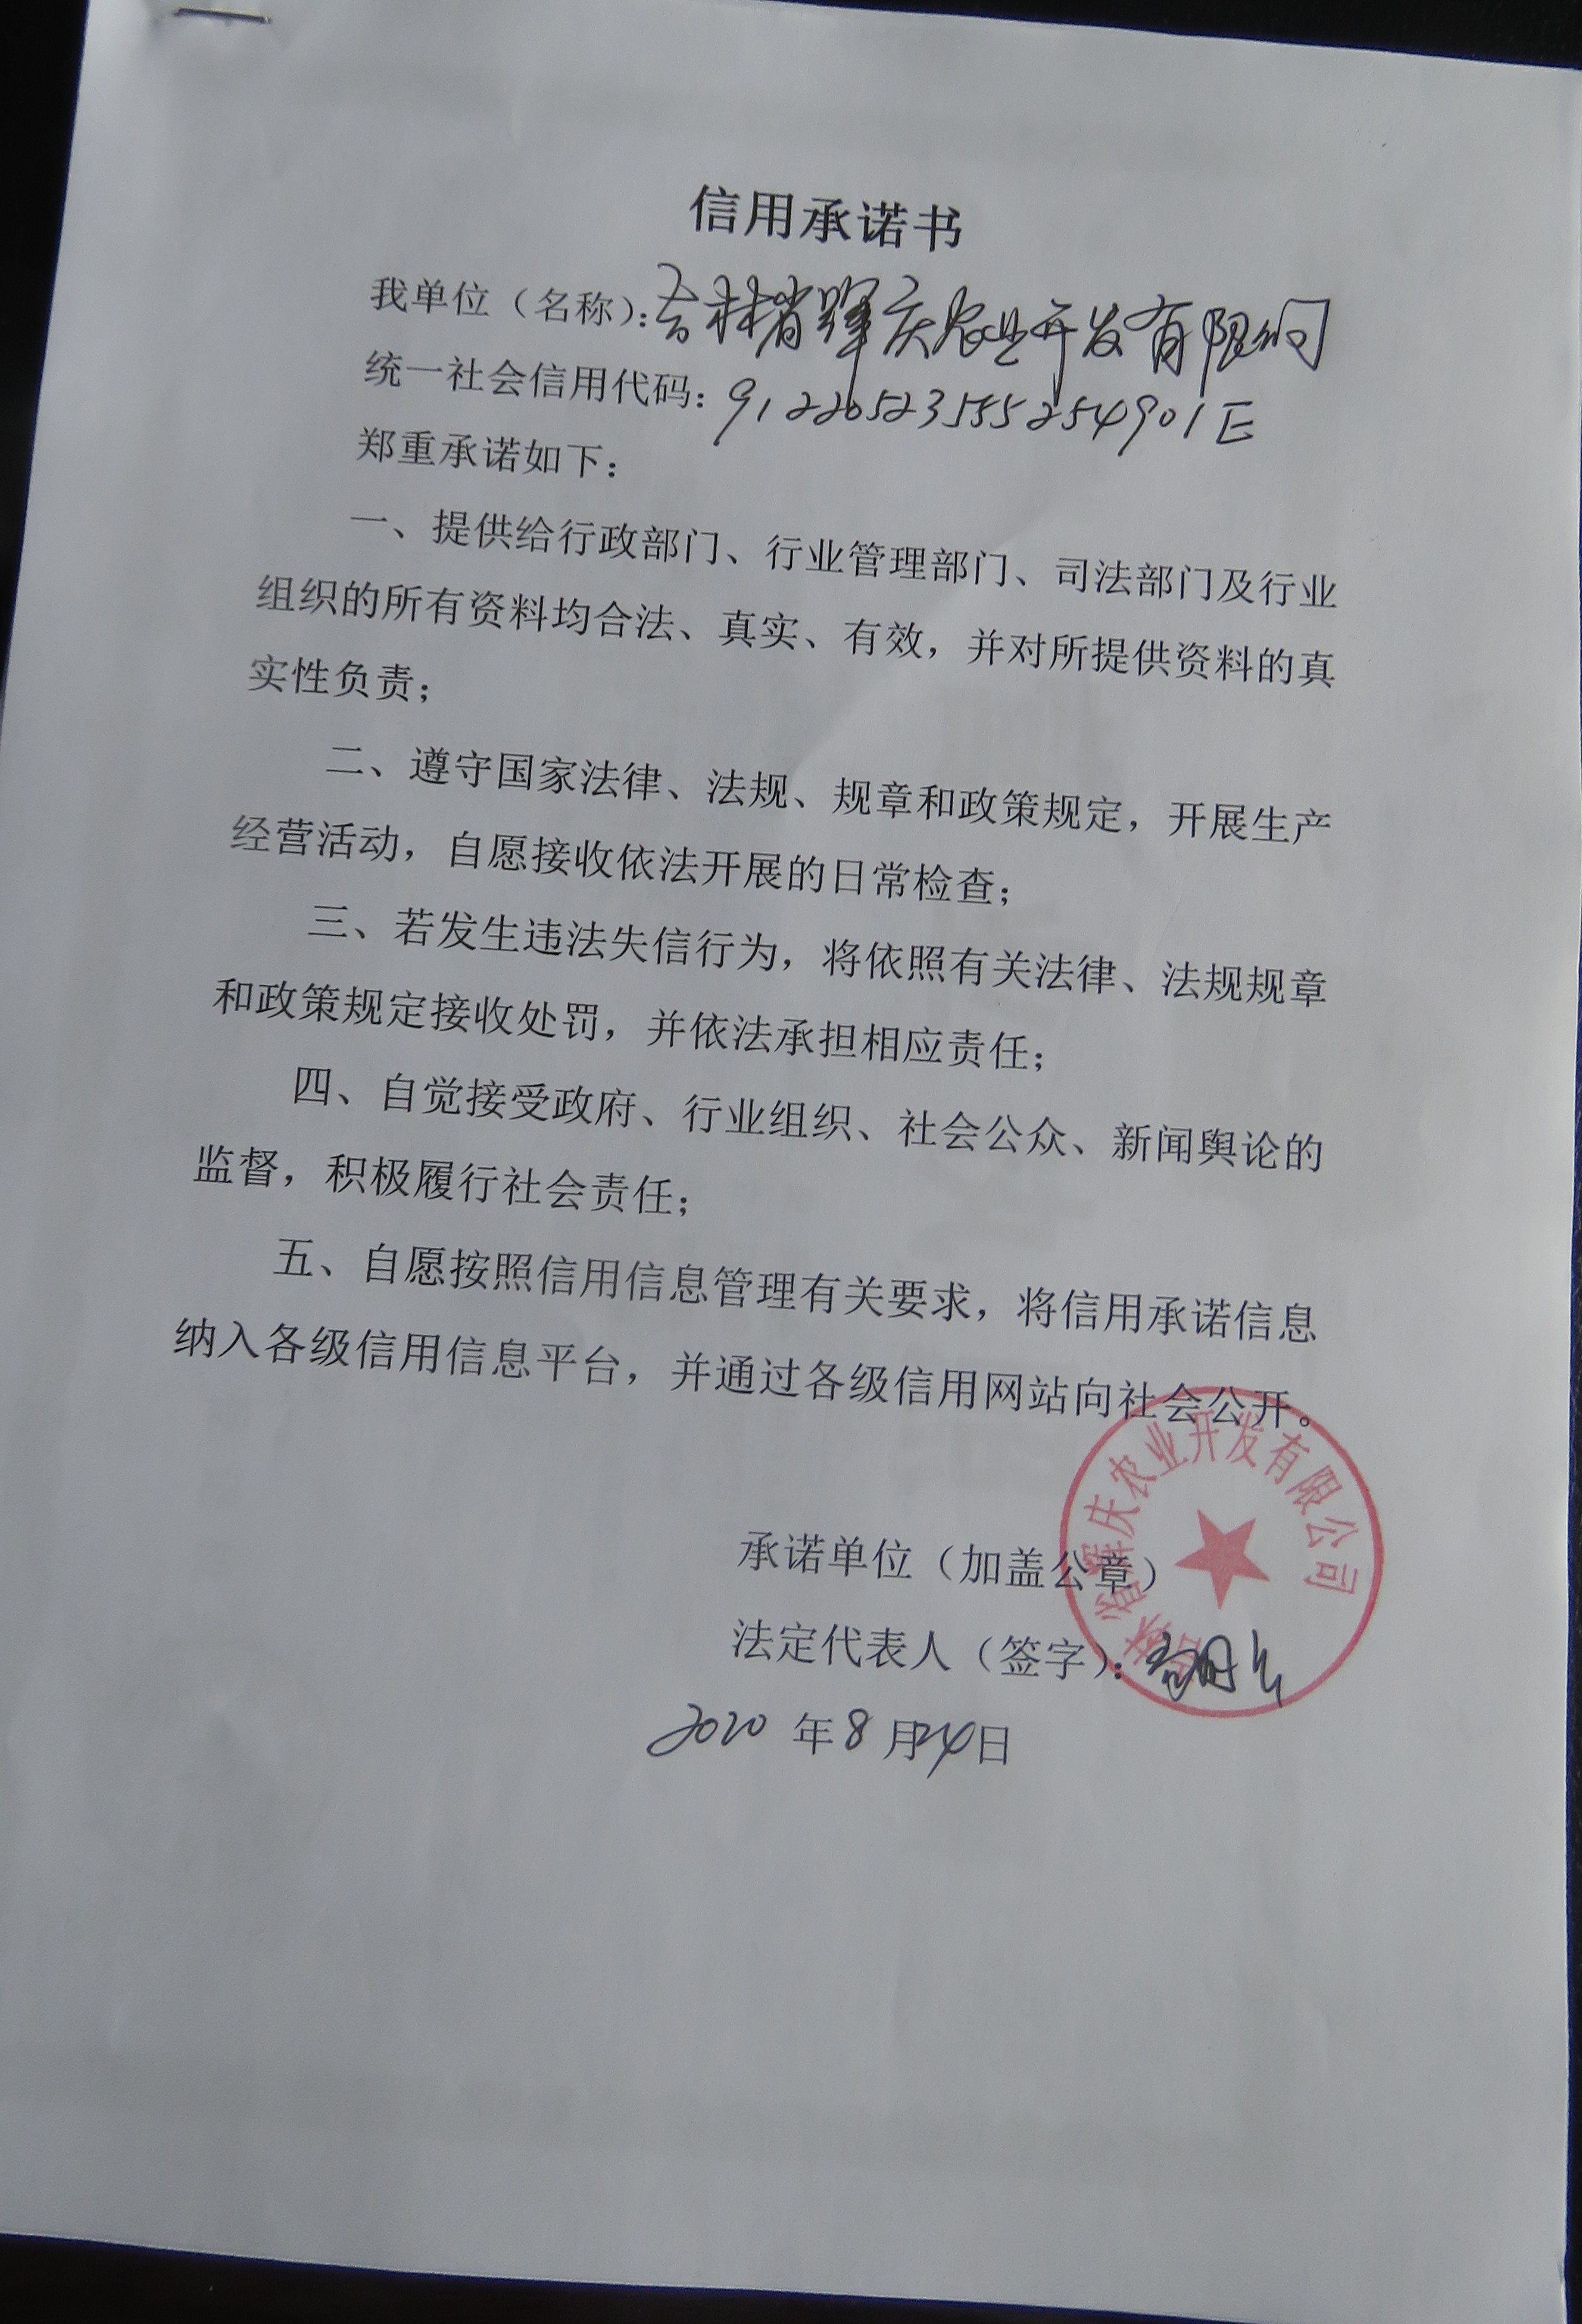 信用承诺书
我单位（名称）：吉林省辉庆农业开发有限公司
统一社会信用代码：91220523555254901E
郑重承诺如下：
一、提供给行政部门、行业管理部门、司法部门及行业
组织的所有资料均合法、真实、有效，并对所提供资料的真
实性负责；
二、遵守国家法律、法规、规章和政策规定，开展生产
经营活动，自愿接收依法开展的日常检查；
三、若发生违法失信行为，将依照有关法律、法规规章
和政策规定接收处罚，并依法承担相应责任；
四、自觉接受政府、行业组织、社会公众、新闻舆论的
监督，积极履行社会责任；
五、自愿按照信用信息管理有关要求，将信用承诺信息
纳入各级信用信息平台，并通过各级信用网站向社会公开。
吉林省辉庆农业开发有限公司
承诺单位（加盖公章）
法定代表人（签字）：
2020 年 8 月 24 日